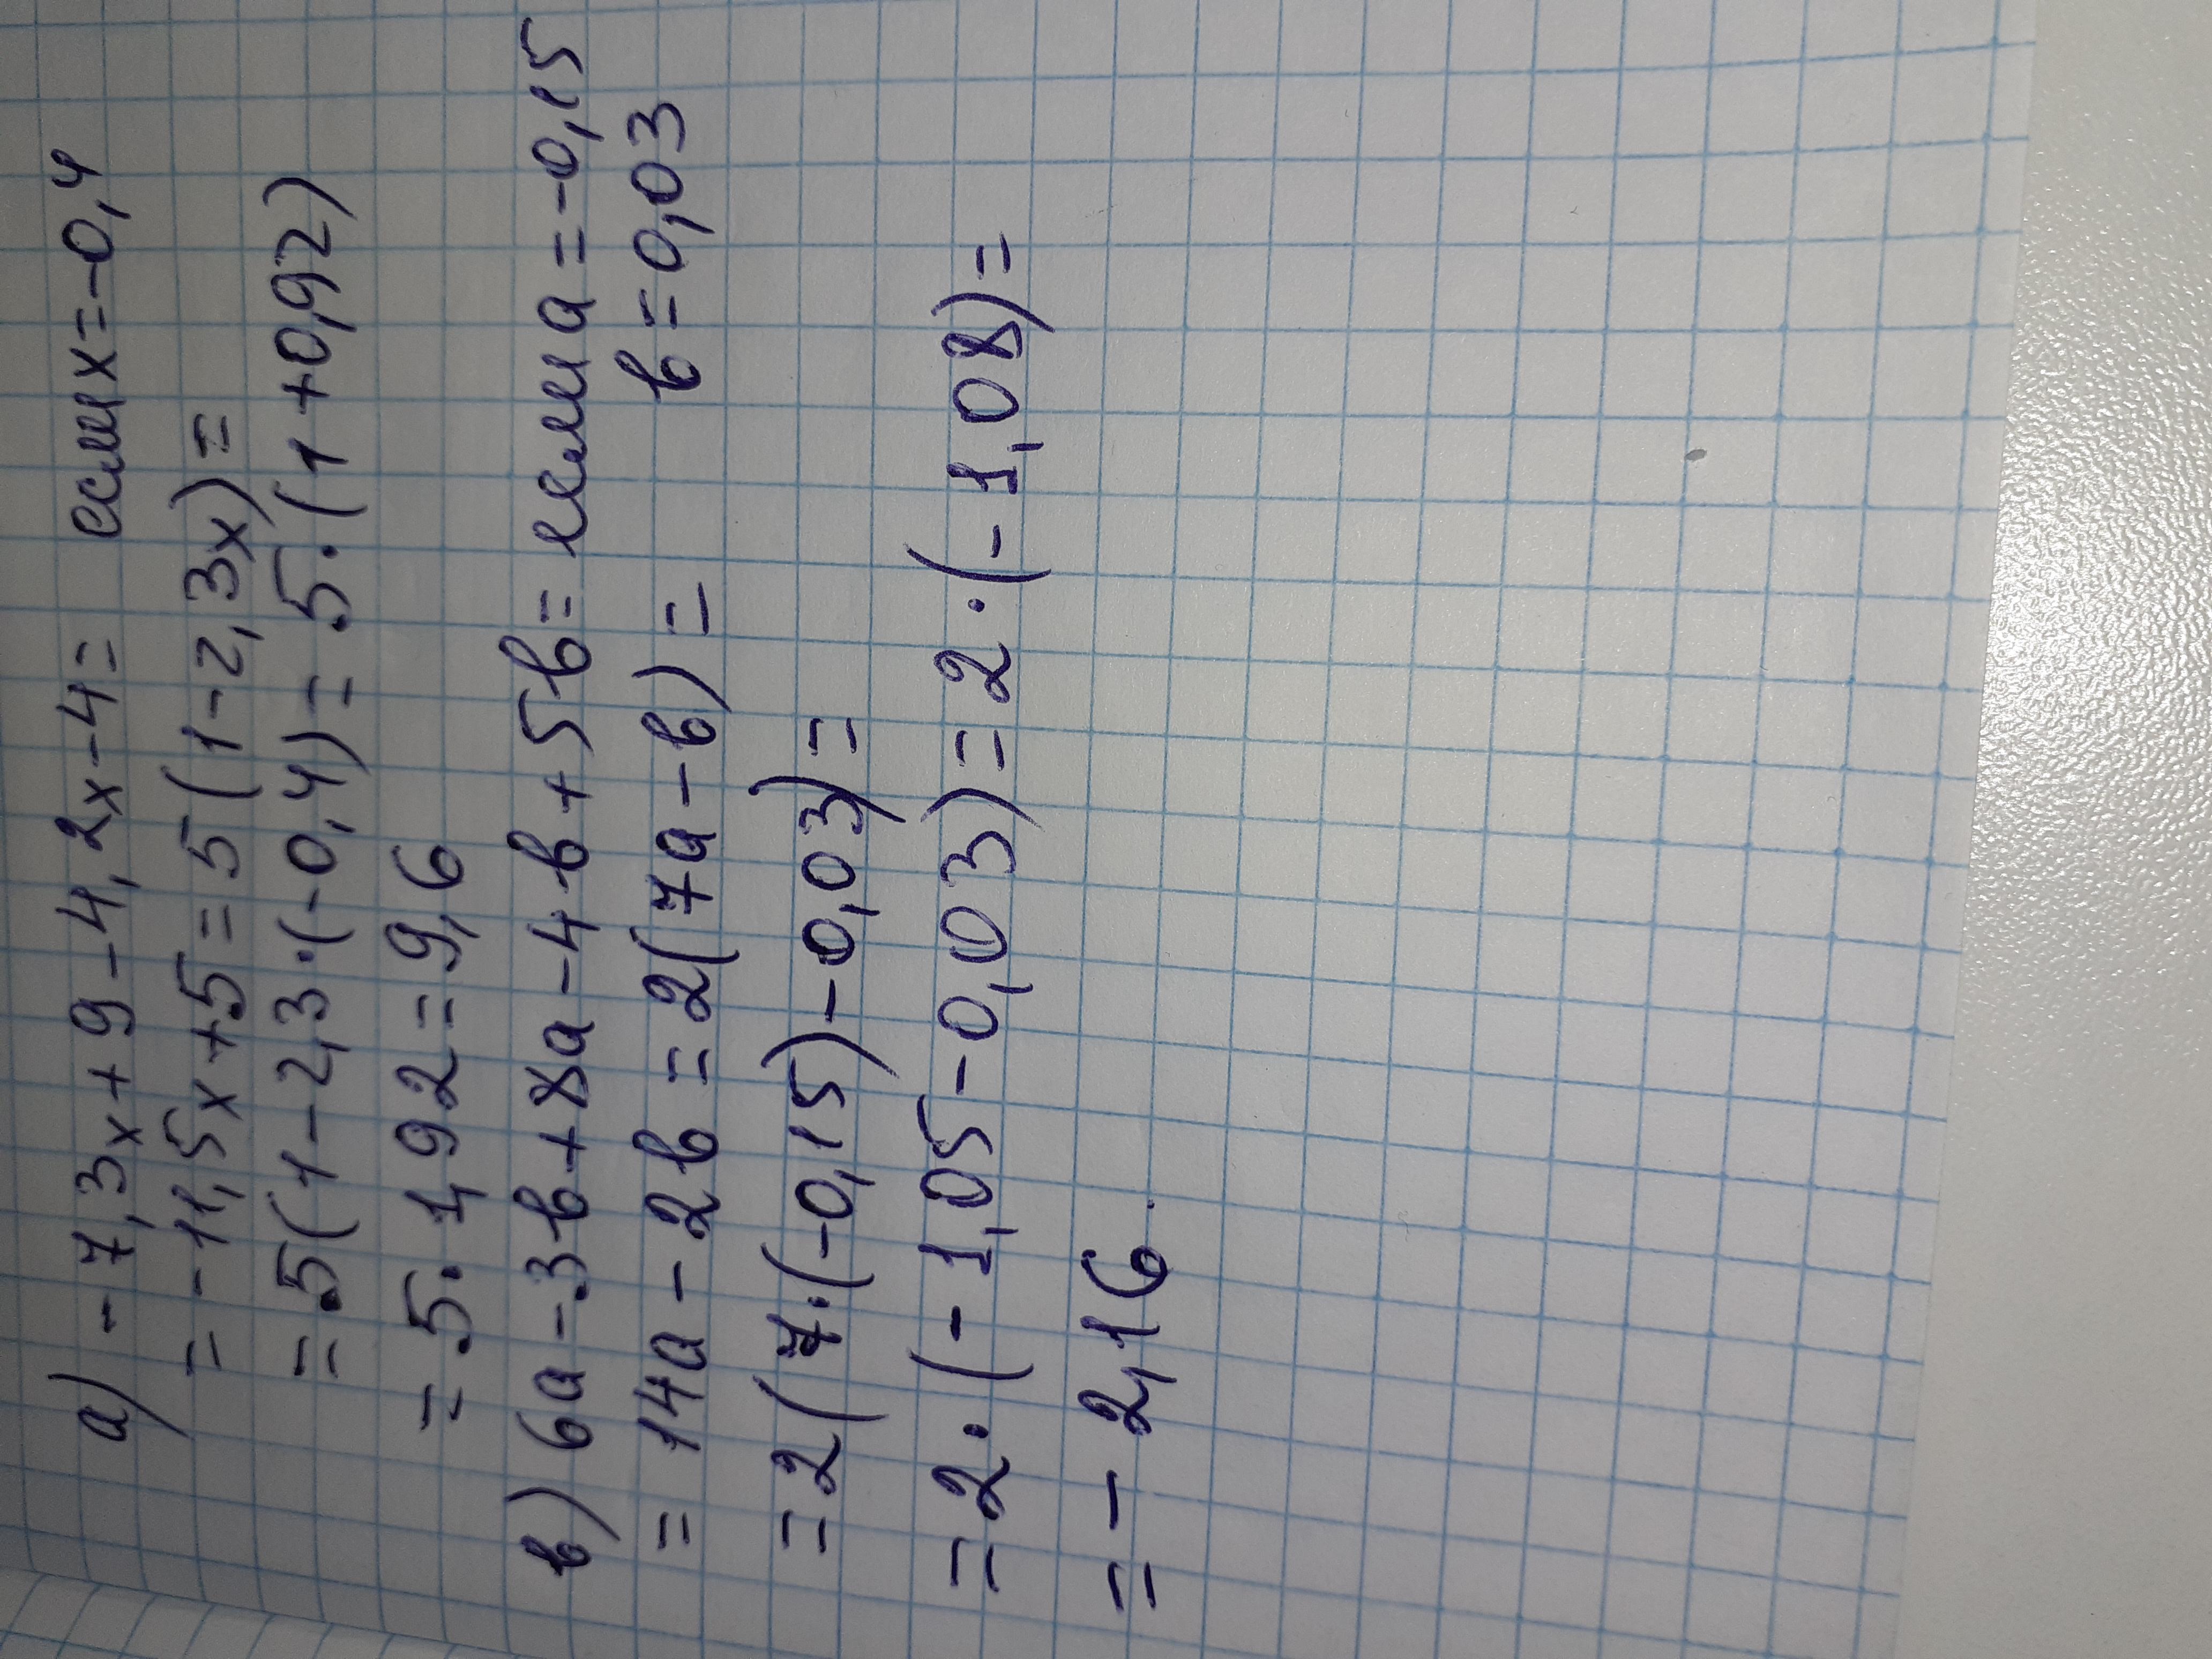 а) -7,3x+9-4,2x-4= если x=-0,4
= -11,5x+5=5(1-2,3x)=
=5(1-2,3·(-0,4)=5·(1+0,92)
=5·1,92=9,6
в) 6а-3в+8а-4в+5в= если а=-0,15
=14а-2в=2(7а-в)= в=0,03
=2(7·(-0,15)-0,03)=
=2·(-1,05-0,03)=2·(-1,08)=
=-2,16.